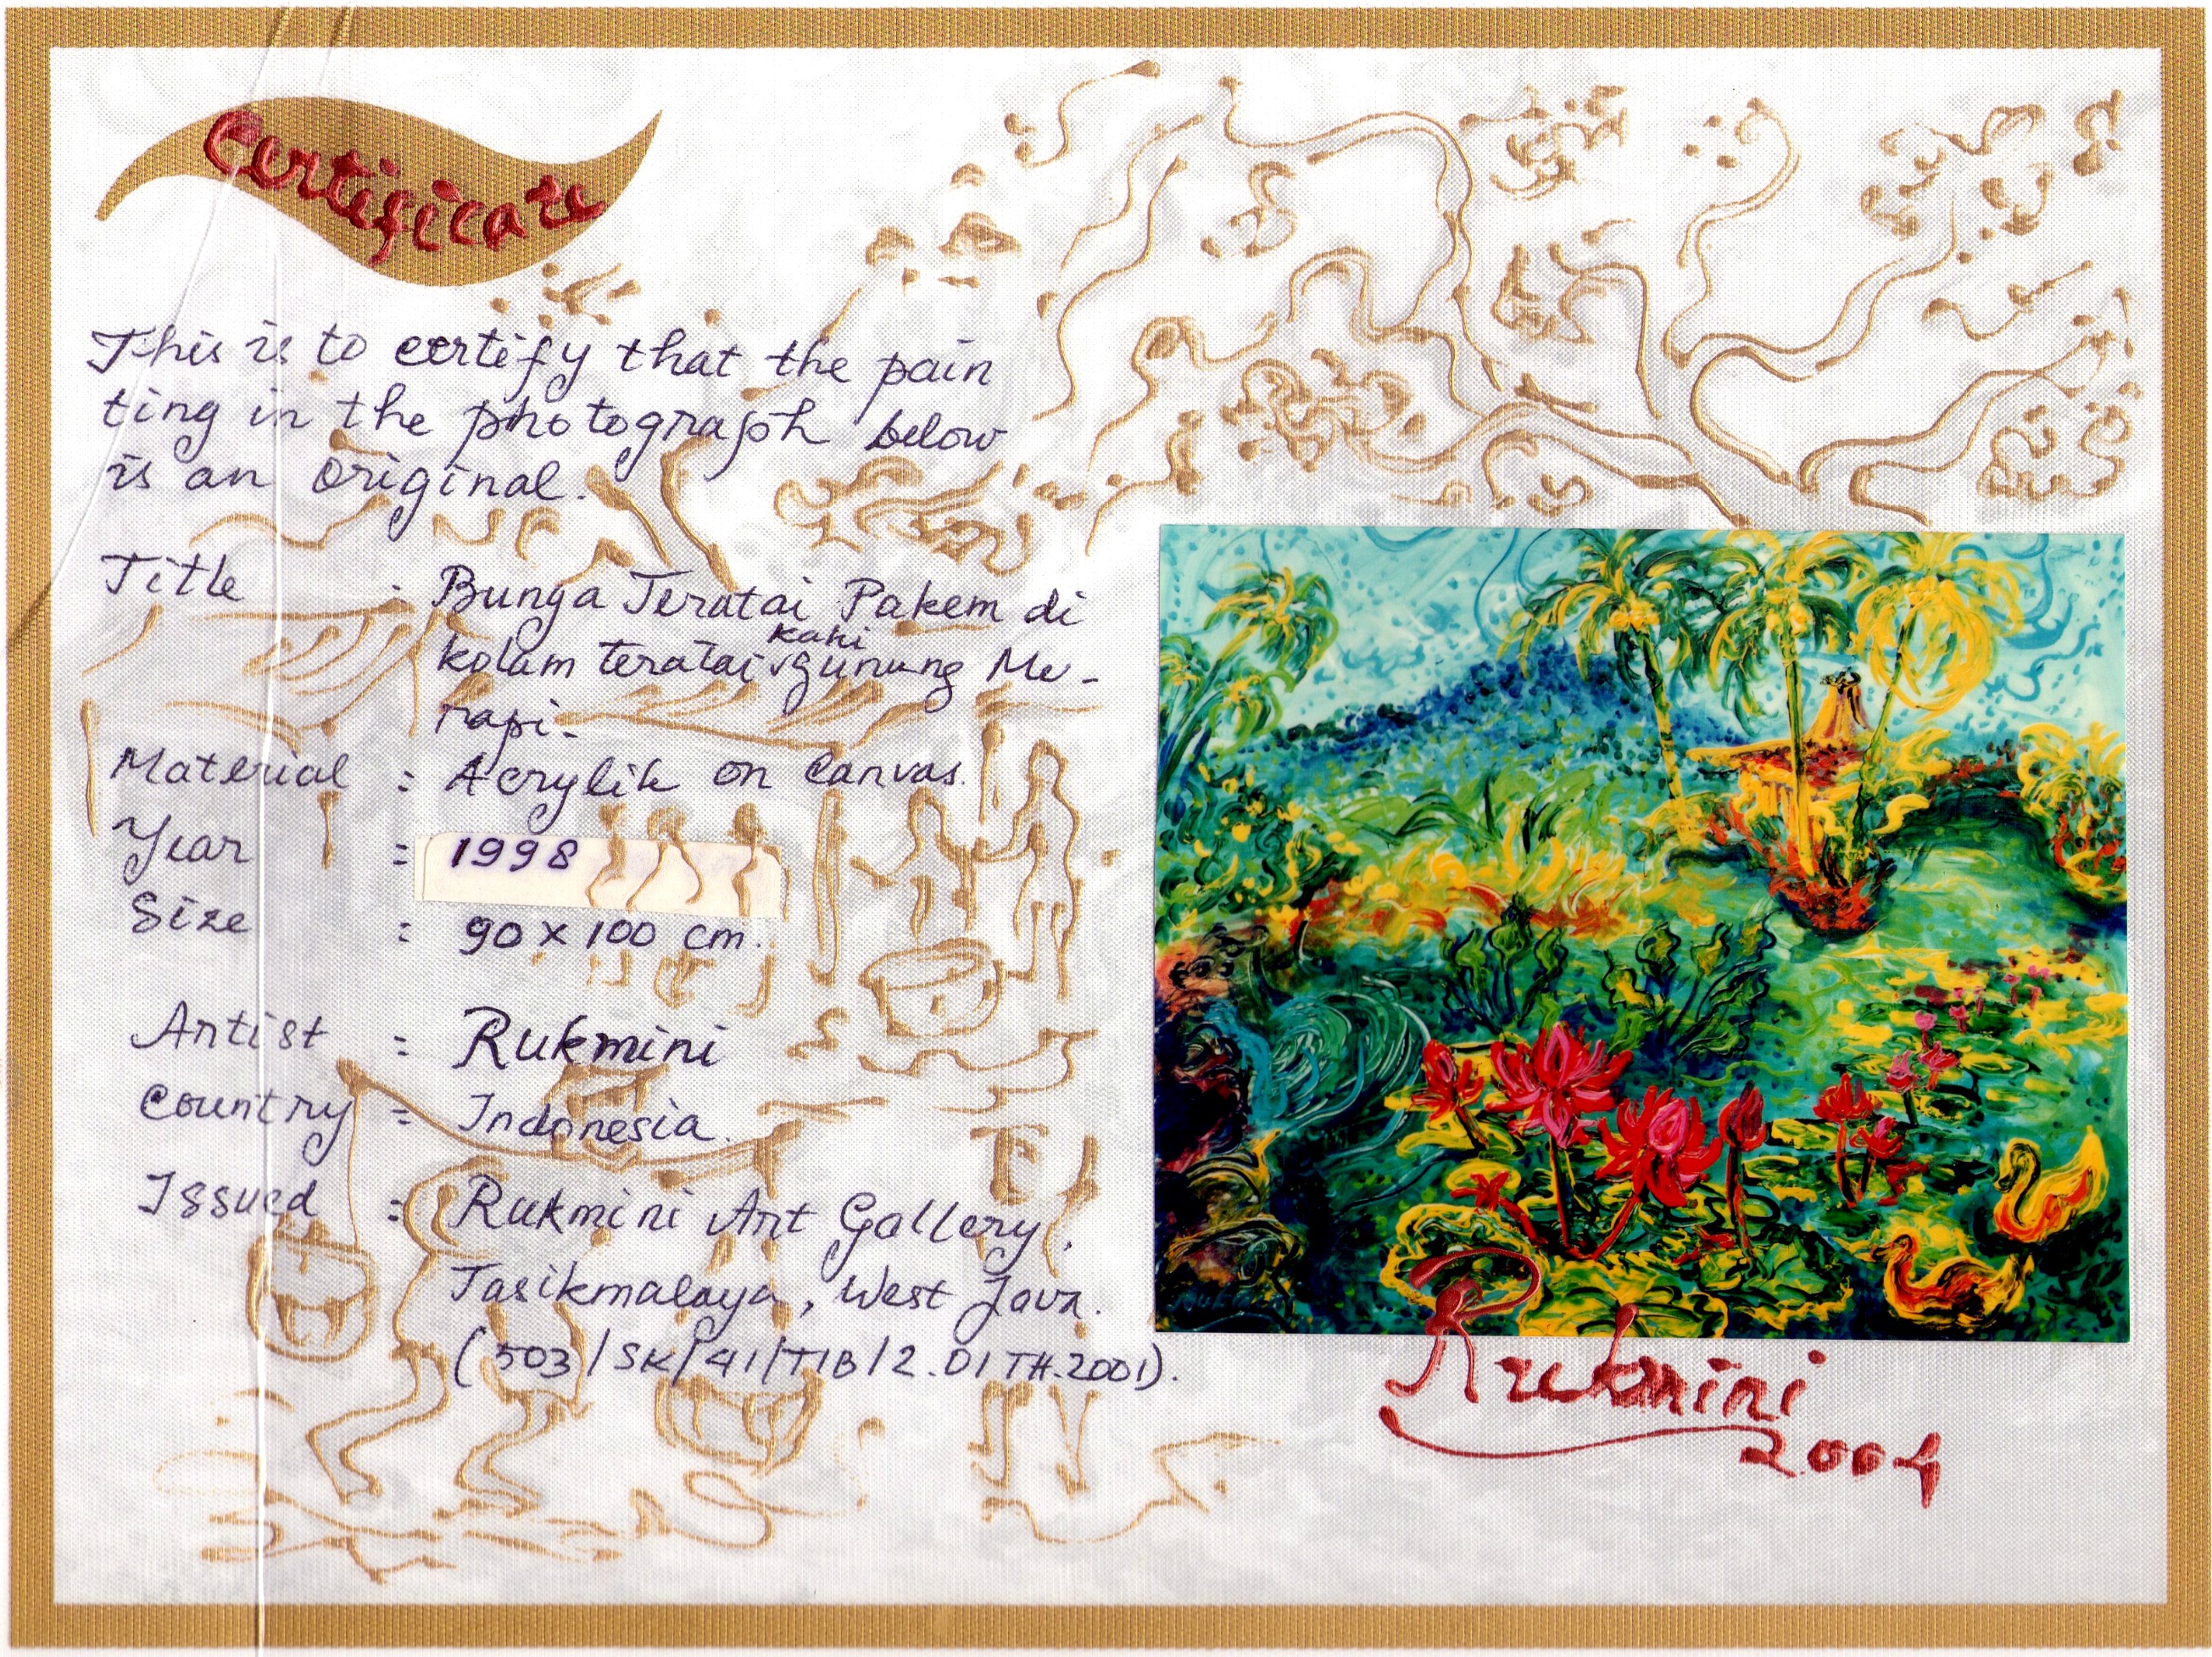 Certificate
This is to certify that the pain
ting in the photograph below
is an original.
Title : Bunga Teratai Pakem di
kahi
kolam teratai v gunung Me-
rapi.
Material : Acrylik on canvas.
Year : 1998
Size : 90 x 100 cm.
Artist : Rukmini
Country : Indonesia.
Issued : Rukmini Art Gallery,
Tasikmalaya, West Java.
(503/SK/41/TIB/2.D/TH.2001).
Rukmini
2004